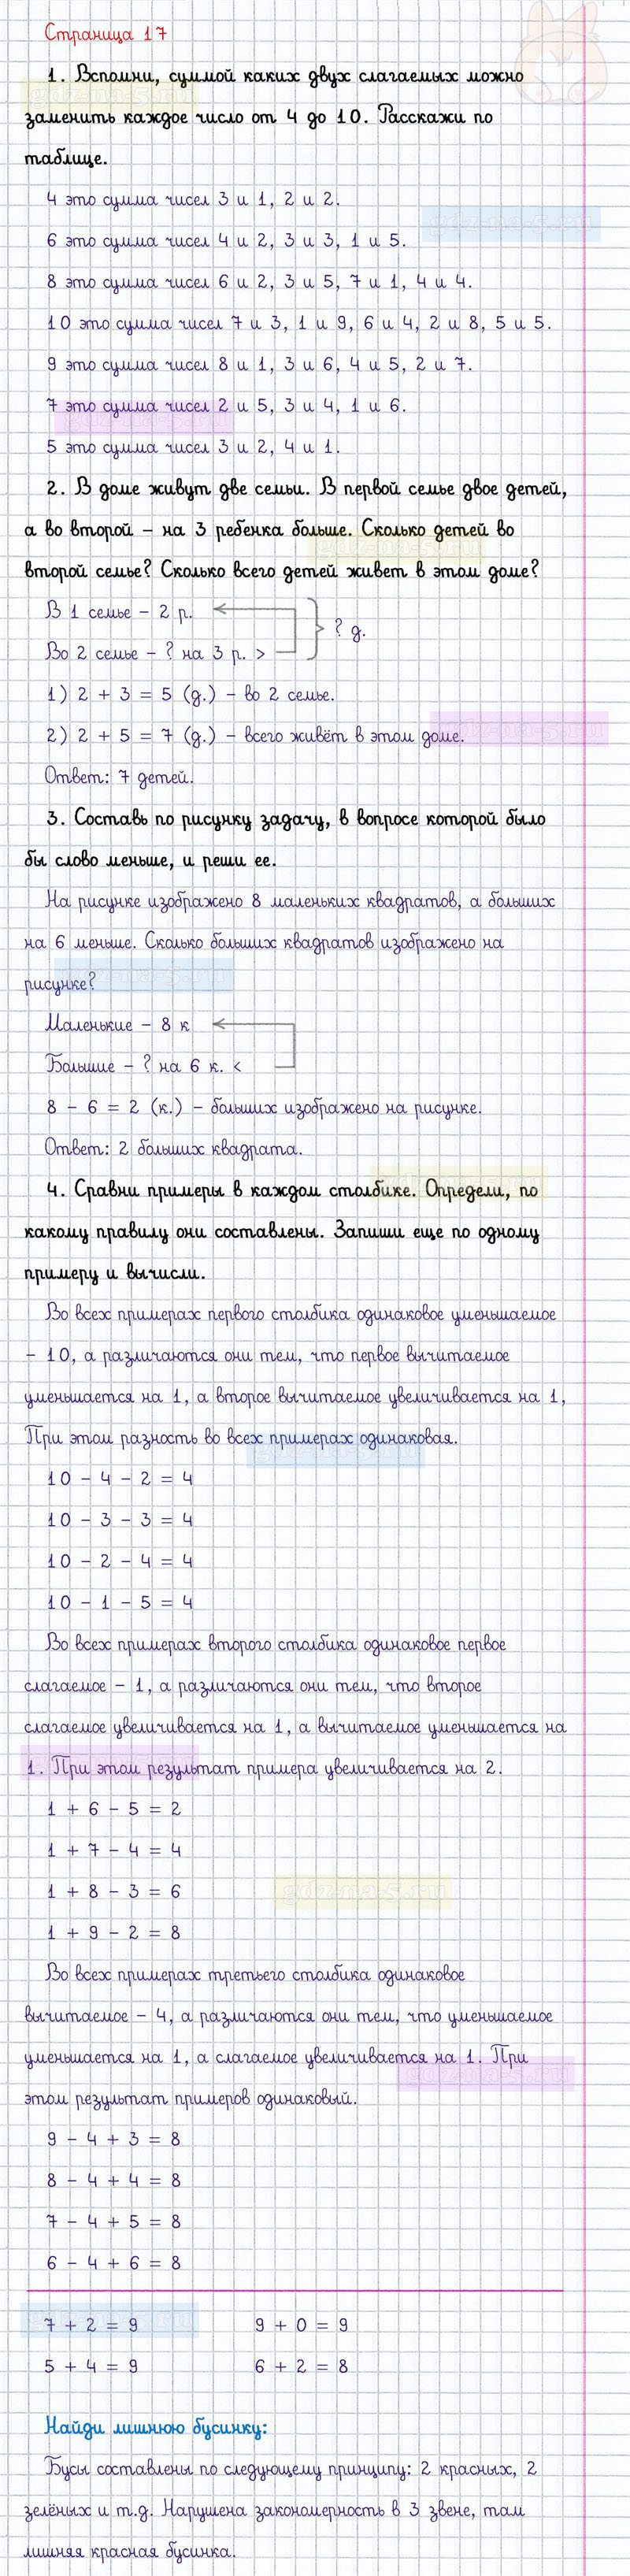 Страница 17
1. Вспомни, суммой каких двух слагаемых можно
заменить каждое число от 4 до 10. Расскажи по
таблице.
4 это сумма чисел 3 и 1, 2 и 2.
6 это сумма чисел 4 и 2, 3 и 3, 1 и 5.
8 это сумма чисел 6 и 2, 3 и 5, 7 и 1, 4 и 4.
10 это сумма чисел 7 и 3, 1 и 9, 6 и 4, 2 и 8, 5 и 5.
9 это сумма чисел 8 и 1, 3 и 6, 4 и 5, 2 и 7.
7 это сумма чисел 2 и 5, 3 и 4, 1 и 6.
5 это сумма чисел 3 и 2, 4 и 1.
2. В доме живут две семьи. В первой семье двое детей,
а во второй – на 3 ребенка больше. Сколько детей во
второй семье? Сколько всего детей живет в этом доме?
В 1 семье – 2 р.
? д.
Во 2 семье – ? на 3 р. >
1) 2 + 3 = 5 (д.) – во 2 семье.
2) 2 + 5 = 7 (д.) – всего живёт в этом доме.
Ответ: 7 детей.
3. Составь по рисунку задачу, в вопросе которой было
бы слово меньше, и реши ее.
На рисунке изображено 8 маленьких квадратов, а больших
на 6 меньше. Сколько больших квадратов изображено на
рисунке?
Маленькие – 8 к
Большие – ? на 6 к. <
8 – 6 = 2 (к.) – больших изображено на рисунке.
Ответ: 2 больших квадрата.
4. Сравни примеры в каждом столбике. Определи, по
какому правилу они составлены. Запиши еще по одному
примеру и вычисли.
Во всех примерах первого столбика одинаковое уменьшаемое
– 10, а различаются они тем, что первое вычитаемое
уменьшается на 1, а второе вычитаемое увеличивается на 1,
При этом разность во всех примерах одинаковая.
10 – 4 – 2 = 4
10 – 3 – 3 = 4
10 – 2 – 4 = 4
10 – 1 – 5 = 4
Во всех примерах второго столбика одинаковое первое
слагаемое – 1, а различаются они тем, что второе
слагаемое увеличивается на 1, а вычитаемое уменьшается на
1. При этом результат примера увеличивается на 2.
1 + 6 – 5 = 2
1 + 7 – 4 = 4
1 + 8 – 3 = 6
gdz-na-5.ru
1 + 9 – 2 = 8
Во всех примерах третьего столбика одинаковое
вычитаемое – 4, а различаются они тем, что уменьшаемое
уменьшается на 1, а слагаемое увеличивается на 1. При
этом результат примеров одинаковый.
9 – 4 + 3 = 8
8 – 4 + 4 = 8
7 – 4 + 5 = 8
6 – 4 + 6 = 8
7 + 2 = 9 9 + 0 = 9
5 + 4 = 9 6 + 2 = 8
Найди лишнюю бусинку:
Бусы составлены по следующему принципу: 2 красных, 2
зелёных и т.д. Нарушена закономерность в 3 звене, там
лишняя красная бусинка.